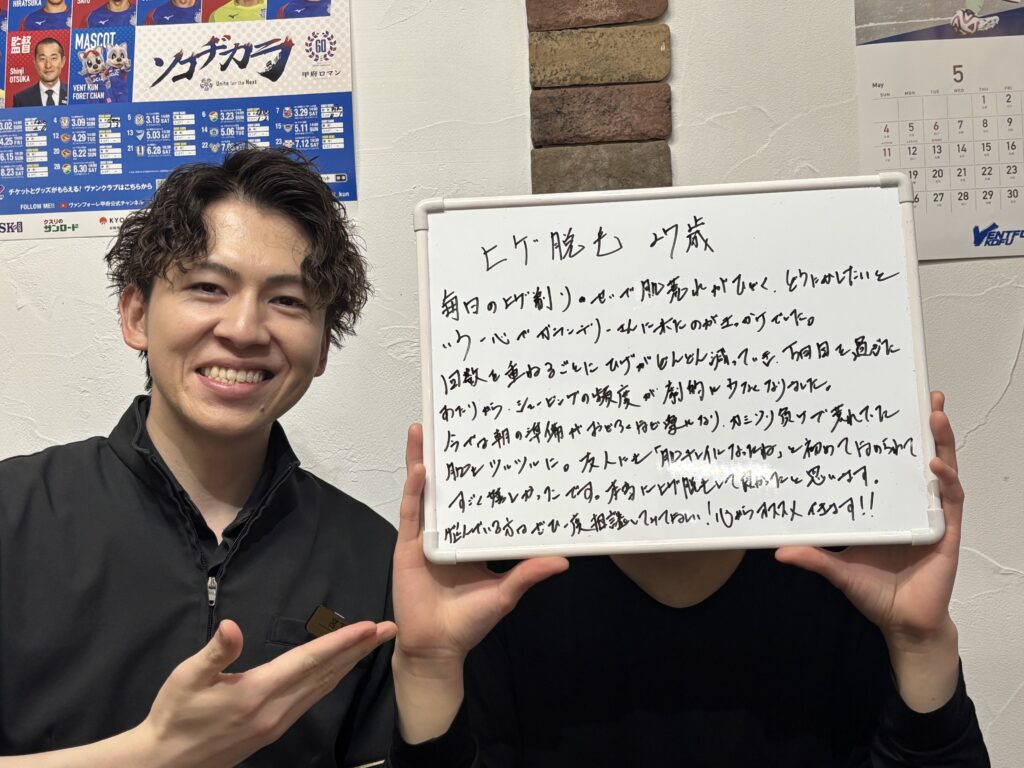 HIRATSUKA
SATO
監督
Shinji
OTSUKA
MASCOT
VENT KUN
FORET CHAN
ソコヂカラ
Unite for the Next
60
甲府ロマン
3.02 SUN
4 3.09 SUN
5 3.15 SAT
6 3.23 SUN
7 3.29 SAT
4.25 FRI
12 4.29 TUE
13 5.03 SAT
14 5.06
15 5.11 SUN
6.15 SUN
20 6.22 SUN
21 6.28 SAT
7.12 SAT
8.23 SAT
28 8.30 SAT
チケットとグッズがもらえる!ヴァンクラブはこちらから
FOLLOW ME!!
ヴァンフォーレ甲府公式チャンネル
クスリの
サンロード
5
May
SUN MON TUE WED THU FRI SAT
1 2 3
4 5 6 7 8 9 10
11 12 13 14 15 16 17
19 20 21 22 23 24
26 27 28 29 30
VENTFO
KOFU
ヒゲ脱毛 27歳
毎日のヒゲ剃りのせいで肌荒れがひどく、どうにかしたいと
いう一心で さんに来たのがきっかけでした。
回数を重ねるごとにヒゲがどんどん減っていき、5回目を過ぎた
あたりから、シェービングの頻度が劇的に少なくなりました。
今では朝の準備がおどろくほど楽になり、カミソリ負けで荒れてた
肌もツルツルに。友人にも「肌キレイになったね」と初めてほめられて
すごく嬉しかったです。本当にヒゲ脱毛して良かったと思います。
悩んでいる方はぜひ一度相談してみてほしい!心からオススメできます!!